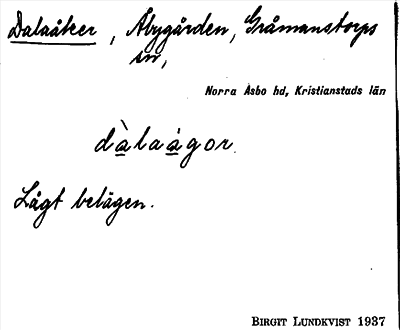 Dalaåker, Åbygården, Gråmanstorps
sn,
Norra Åsbo hd, Kristianstads län
dàlaágor.
Lågt belägen.
BIRGIT LUNDKVIST 1937